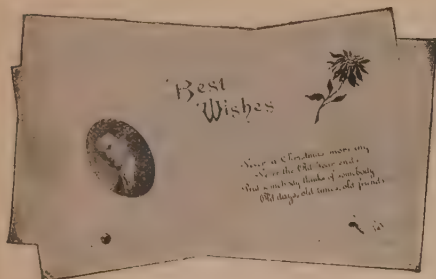 Best
Wishes
Never a Christmas morning
Never the Old Year ends,
But somebody thinks of somebody
Old days, old times, old friends.